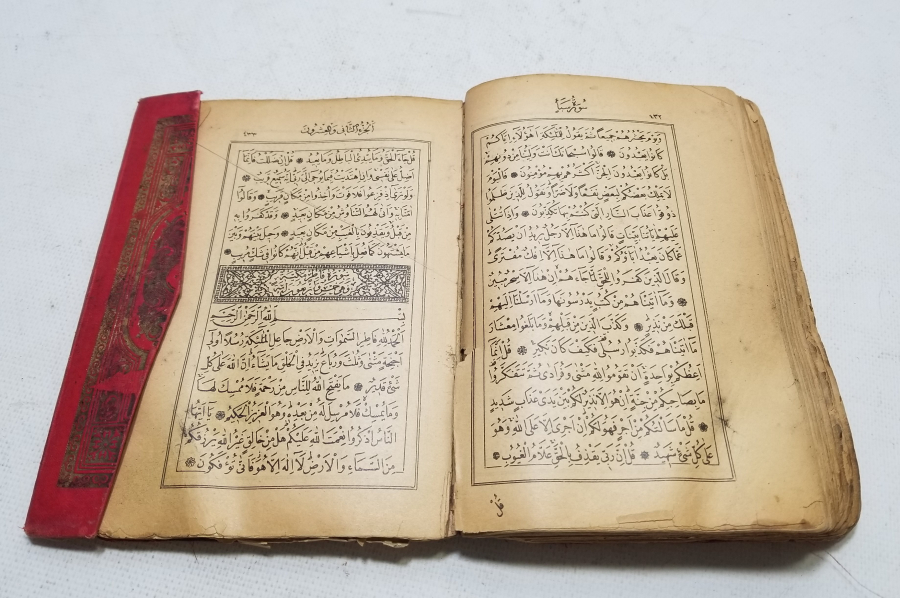 سُورَةُ سَبَأٍ
٤٣٢
وَيَوْمَ يَحْشُرُهُمْ جَمِيعًا ثُمَّ يَقُولُ لِلْمَلٰٓئِكَةِ اَهٰٓؤُلَٓاءِ اِيَّاكُمْ
كَانُوا يَعْبُدُونَ ۞ قَالُوا سُبْحَانَكَ اَنْتَ وَلِيُّنَا مِنْ دُونِهِمْ
بَلْ كَانُوا يَعْبُدُونَ الْجِنَّ اَكْثَرُهُمْ بِهِمْ مُؤْمِنُونَ ۞ فَالْيَوْمَ
لَا يَمْلِكُ بَعْضُكُمْ لِبَعْضٍ نَفْعًا وَلَا ضَرًّا وَنَقُولُ لِلَّذِينَ ظَلَمُوا
ذُوقُوا عَذَابَ النَّارِ الَّتِي كُنْتُمْ بِهَا تُكَذِّبُونَ ۞ وَاِذَا تُتْلٰى
عَلَيْهِمْ اٰيَاتُنَا بَيِّنَاتٍ قَالُوا مَا هٰذَا اِلَّا رَجُلٌ يُرِيدُ اَنْ يَصُدَّكُمْ
عَمَّا كَانَ يَعْبُدُ اٰبَٓاؤُكُمْ وَقَالُوا مَا هٰذَا اِلَّا اِفْكٌ مُفْتَرًى
وَقَالَ الَّذِينَ كَفَرُوا لِلْحَقِّ لَمَّا جَٓاءَهُمْ اِنْ هٰذَا اِلَّا سِحْرٌ مُبِينٌ
۞ وَمَا اٰتَيْنَاهُمْ مِنْ كُتُبٍ يَدْرُسُونَهَا وَمَا اَرْسَلْنَا اِلَيْهِمْ
قَبْلَكَ مِنْ نَذِيرٍ ۞ وَكَذَّبَ الَّذِينَ مِنْ قَبْلِهِمْ وَمَا بَلَغُوا مِعْشَارَ
مَا اٰتَيْنَاهُمْ فَكَذَّبُوا رُسُلِي فَكَيْفَ كَانَ نَكِيرِ ۞ قُلْ اِنَّمَا
اَعِظُكُمْ بِوَاحِدَةٍ اَنْ تَقُومُوا لِلّٰهِ مَثْنٰى وَفُرَادٰى ثُمَّ تَتَفَكَّرُوا
مَا بِصَاحِبِكُمْ مِنْ جِنَّةٍ اِنْ هُوَ اِلَّا نَذِيرٌ لَكُمْ بَيْنَ يَدَيْ عَذَابٍ شَدِيدٍ
۞ قُلْ مَا سَاَلْتُكُمْ مِنْ اَجْرٍ فَهُوَ لَكُمْ اِنْ اَجْرِيَ اِلَّا عَلَى اللّٰهِ وَهُوَ
عَلٰى كُلِّ شَيْءٍ شَهِيدٌ ۞ قُلْ اِنَّ رَبِّي يَقْذِفُ بِالْحَقِّ عَلَّامُ الْغُيُوبِ ۞
قُلْ
اَلْجُزْءُ الثَّانِي وَالْعِشْرُونَ
٤٣٣
قُلْ جَٓاءَ الْحَقُّ وَمَا يُبْدِئُ الْبَاطِلُ وَمَا يُعِيدُ ۞ قُلْ اِنْ ضَلَلْتُ فَاِنَّمَا
اَضِلُّ عَلٰى نَفْسِي وَاِنِ اهْتَدَيْتُ فَبِمَا يُوحِي اِلَيَّ رَبِّي اِنَّهُ سَمِيعٌ قَرِيبٌ ۞
وَلَوْ تَرٰى اِذْ فَزِعُوا فَلَا فَوْتَ وَاُخِذُوا مِنْ مَكَانٍ قَرِيبٍ ۞ وَقَالُوا
اٰمَنَّا بِهِ وَاَنّٰى لَهُمُ التَّنَاوُشُ مِنْ مَكَانٍ بَعِيدٍ ۞ وَقَدْ كَفَرُوا بِهِ
مِنْ قَبْلُ وَيَقْذِفُونَ بِالْغَيْبِ مِنْ مَكَانٍ بَعِيدٍ ۞ وَحِيلَ بَيْنَهُمْ وَبَيْنَ
مَا يَشْتَهُونَ كَمَا فُعِلَ بِاَشْيَاعِهِمْ مِنْ قَبْلُ اِنَّهُمْ كَانُوا فِي شَكٍّ مُرِيبٍ ۞
بِسْمِ اللّٰهِ الرَّحْمٰنِ الرَّحِيمِ
اَلْحَمْدُ لِلّٰهِ فَاطِرِ السَّمٰوَاتِ وَالْاَرْضِ جَاعِلِ الْمَلٰٓئِكَةِ رُسُلًا اُولِي
اَجْنِحَةٍ مَثْنٰى وَثُلٰثَ وَرُبَاعَ يَزِيدُ فِي الْخَلْقِ مَا يَشَٓاءُ اِنَّ اللّٰهَ عَلٰى كُلِّ
شَيْءٍ قَدِيرٌ ۞ مَا يَفْتَحِ اللّٰهُ لِلنَّاسِ مِنْ رَحْمَةٍ فَلَا مُمْسِكَ لَهَا
وَمَا يُمْسِكْ فَلَا مُرْسِلَ لَهُ مِنْ بَعْدِهِ وَهُوَ الْعَزِيزُ الْحَكِيمُ ۞ يَٓا اَيُّهَا
النَّاسُ اذْكُرُوا نِعْمَتَ اللّٰهِ عَلَيْكُمْ هَلْ مِنْ خَالِقٍ غَيْرُ اللّٰهِ يَرْزُقُكُمْ
مِنَ السَّمَٓاءِ وَالْاَرْضِ لَٓا اِلٰهَ اِلَّا هُوَ فَاَنّٰى تُؤْفَكُونَ ۞